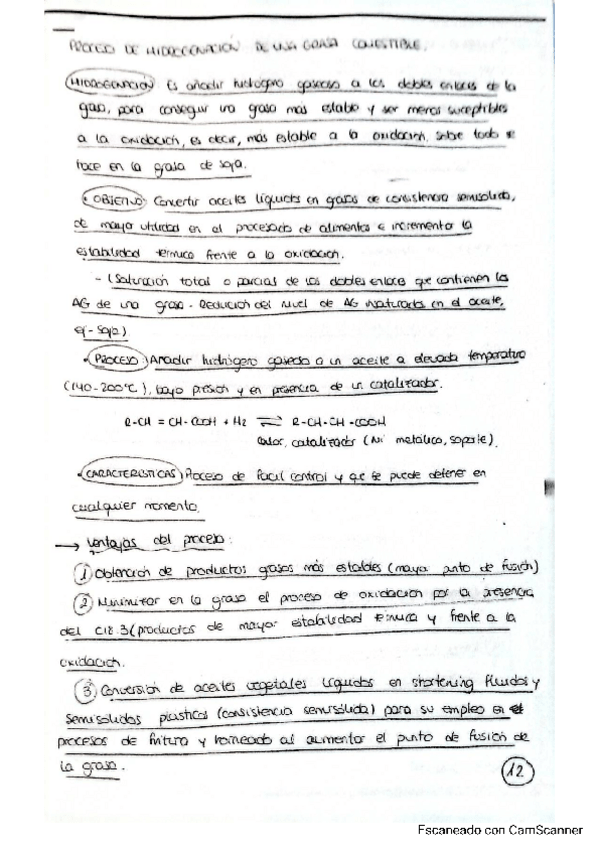 PROCESO DE HIDROGENACIÓN DE UNA GRASA COMESTIBLE.
HIDROGENACIÓN: Es añadir hidrógeno gaseoso a los dobles enlaces de la
grasa, para conseguir una grasa más estable y ser menos suceptibles
a la oxidación, es decir, más estable a la oxidación, sobre todo se
hace en la grasa de soja.
· OBJETIVO: Convertir aceites líquidos en grasas de consistencia semisólida,
de mayor utilidad en el procesado de alimentos e incremento la
estabilidad térmica frente a la oxidación.
- (Saturación total o parcial de los dobles enlace que contienen los
AG de una grasa - Reducción del nivel de AG insaturados en el aceite,
ej - soja).
· PROCESO: Añadir hidrógeno gaseoso a un aceite a elevada temperatura
(140-200ºC), bajo presión y en presencia de un catalizador.
R-CH = CH-COOH + H2 ⇌ R-CH-CH-COOH
Calor, catalizador (Ni metálico, soporte).
· CARACTERÍSTICAS: Proceso de fácil control y que se puede detener en
cualquier momento.
→ Ventajas del proceso:
1 Obtención de productos grasos más estables (mayor punto de fusión)
2 Minimizar en la grasa el proceso de oxidación por la presencia
del C18:3 (productos de mayor estabilidad térmica y frente a la
oxidación.
3 Conversión de aceites vegetales líquidos en shortening fluidos y
semisólidos plásticos (consistencia semisólida) para su empleo en el
procesos de fritura y horneado al aumentar el punto de fusión de
la grasa.
12
Escaneado con CamScanner